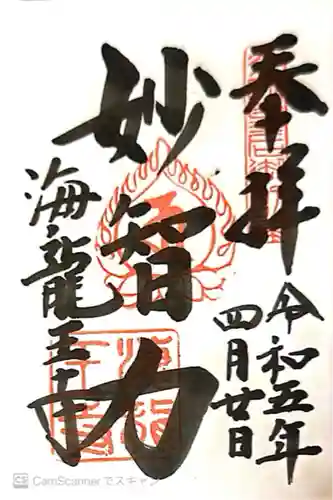 奉拝
令和五年
四月廿日
妙智力
海龍王寺
CamScanner でスキャン